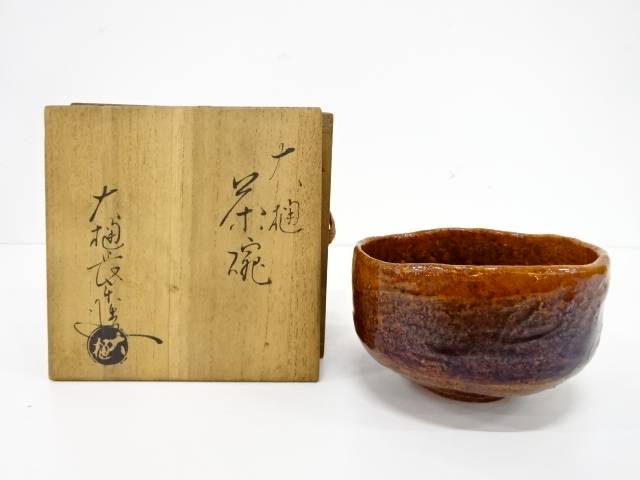 大樋
茶碗
大樋長左衛門
大樋